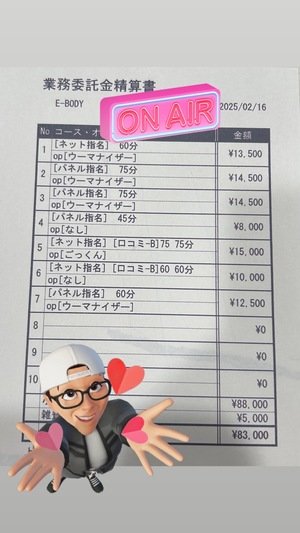 業務委託金精算書
E-BODY
2025/02/16
ON AIR
No コース・オ 金額
1 [ネット指名] 60分
op[ウーマナイザー] ¥13,500
2 [パネル指名] 75分
op[ウーマナイザー] ¥14,500
3 [パネル指名] 75分
op[ウーマナイザー] ¥14,500
4 [パネル指名] 45分
op[なし] ¥8,000
5 [ネット指名] [口コミ-B]75 75分
op[ごっくん] ¥15,000
6 [ネット指名] [口コミ-B]60 60分
op[なし] ¥10,000
7 [パネル指名] 60分
op[ウーマナイザー] ¥12,500
8 ¥0
9 ¥0
10 ¥0
¥88,000
雑 ¥5,000
¥83,000